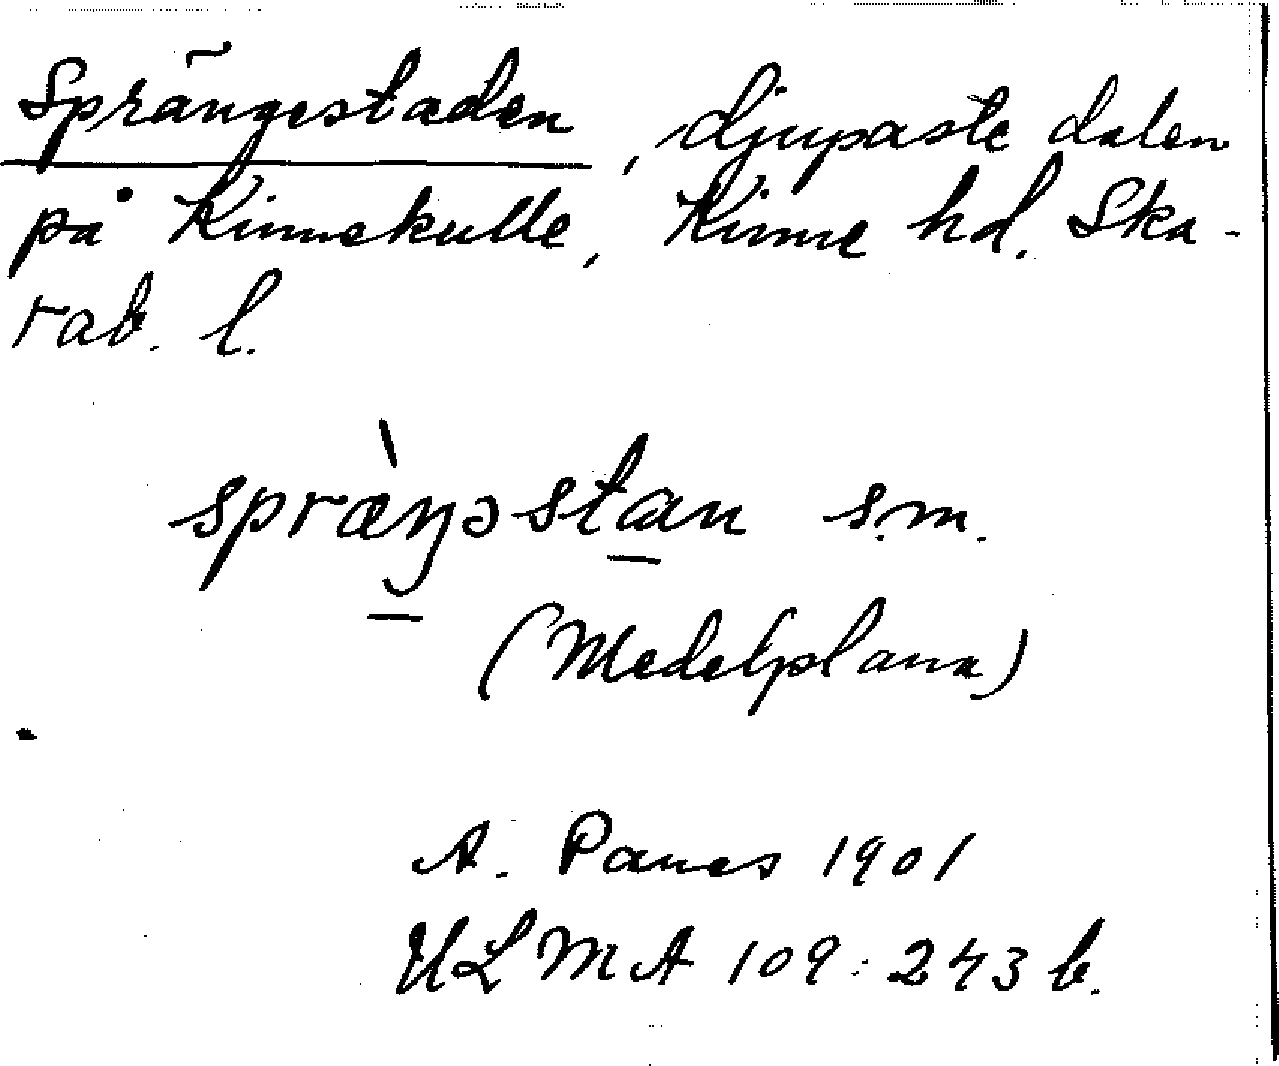 Sprängestaden, djupaste dalen
på Kinnekulle, Kinne hd. Ska-
rab. l.
spræ̀ŋɔstan s.m.
(Medelplana)
A. Panes 1901
ULMA 109:243 b.